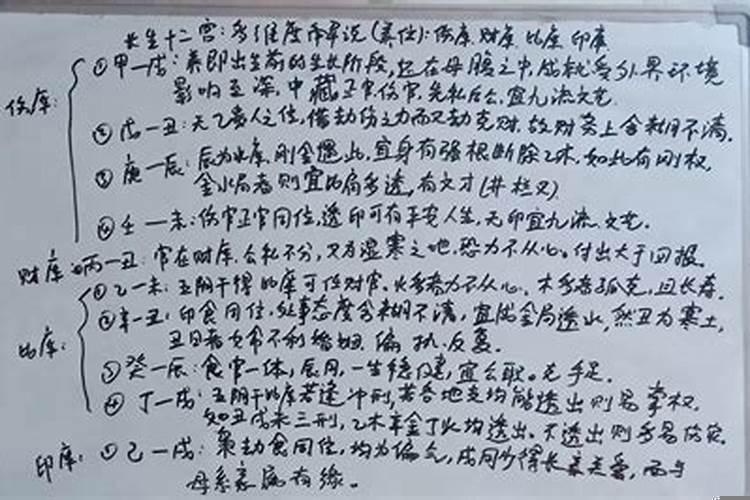 长生十二宫:多维度命界说(养位):伤库.财库.比库.印库
伤库:
①甲一戌:养即出生前的生长阶段,起在母腹之中,成就受外界环境
影响至深,中藏正官伤官,先私后公,宜九流文艺.
②戊一丑:天乙贵人之位,借劫伤之力而又劫克财,故财务上含糊不清.
③庚一辰:辰为水库,刚金遇此,宜身有强根断除乙木,如此有刚权,
金水局者则宜比肩多透,有文才(井栏叉)
④壬一未:伤官正官同位,透印可有平安人生,无印宜九流.文艺.
财库:丙一丑:官在财库,公私不分,又为湿寒之地.恐力不从心。付出大于回报。
比库:
①乙一未:五阴干得比库可任财官,火多者力不从心,木多者孤克,且长寿.
②辛一丑:印食同位,处事态度含糊不清,宜成金局透水,然丑为寒土,
丑日者女常不利婚姻,偏执.反复.
③癸一辰:食官一体,辰月,一生稳健,宜公职。克手足.
④丁一戌:五阴干比库若逢冲刑,若各地支均能透出则易掌权.
如丑戌未三刑,乙木辛金丁火均透出,不透出则多易伤灾.
印库:①己一戌:枭劫食同位,均为偏气,戌同少得长亲关爱,而与
母系家庭有缘。